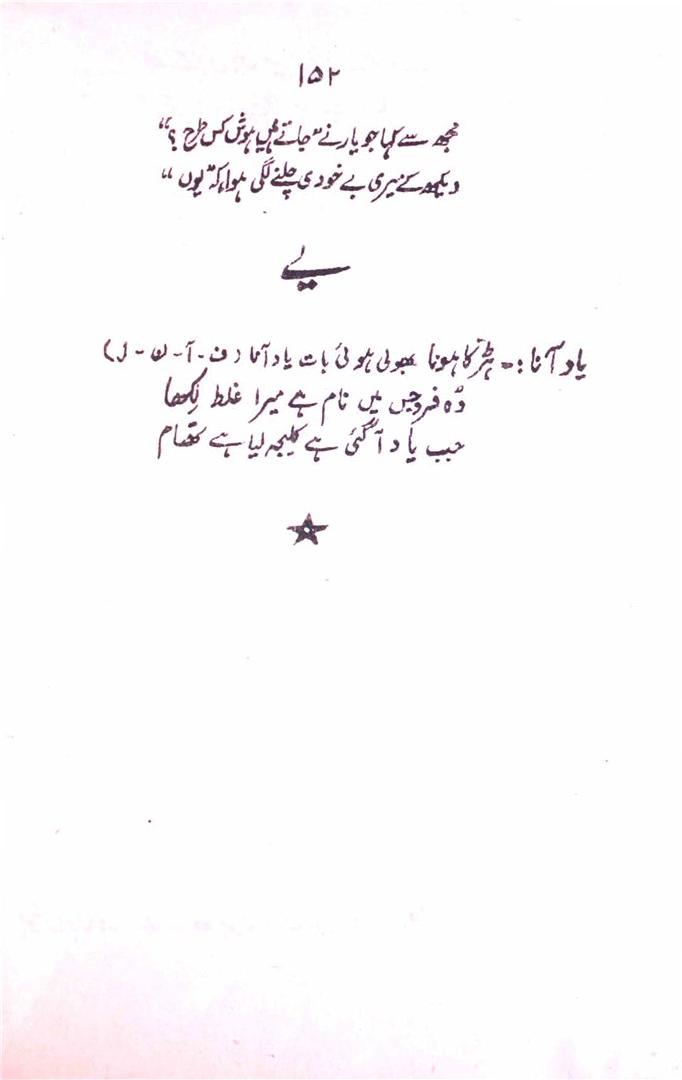 ۱۵۲
مجھ سے کہا جو یار نے "جاتے ہیں ہوش کس طرح ؟"
دیکھ کے میری بے خودی چلنے لگی ہوا کہ "یوں"
یے
یاد آنا :- ہڑکا ہونا بھولی ہوئی بات یاد آنا (ف - آ - ن - ل)
وہ فرد جس میں نام ہے میرا غلط لکھا
جب یاد آ گئی ہے کلیجہ لیا ہے تھام